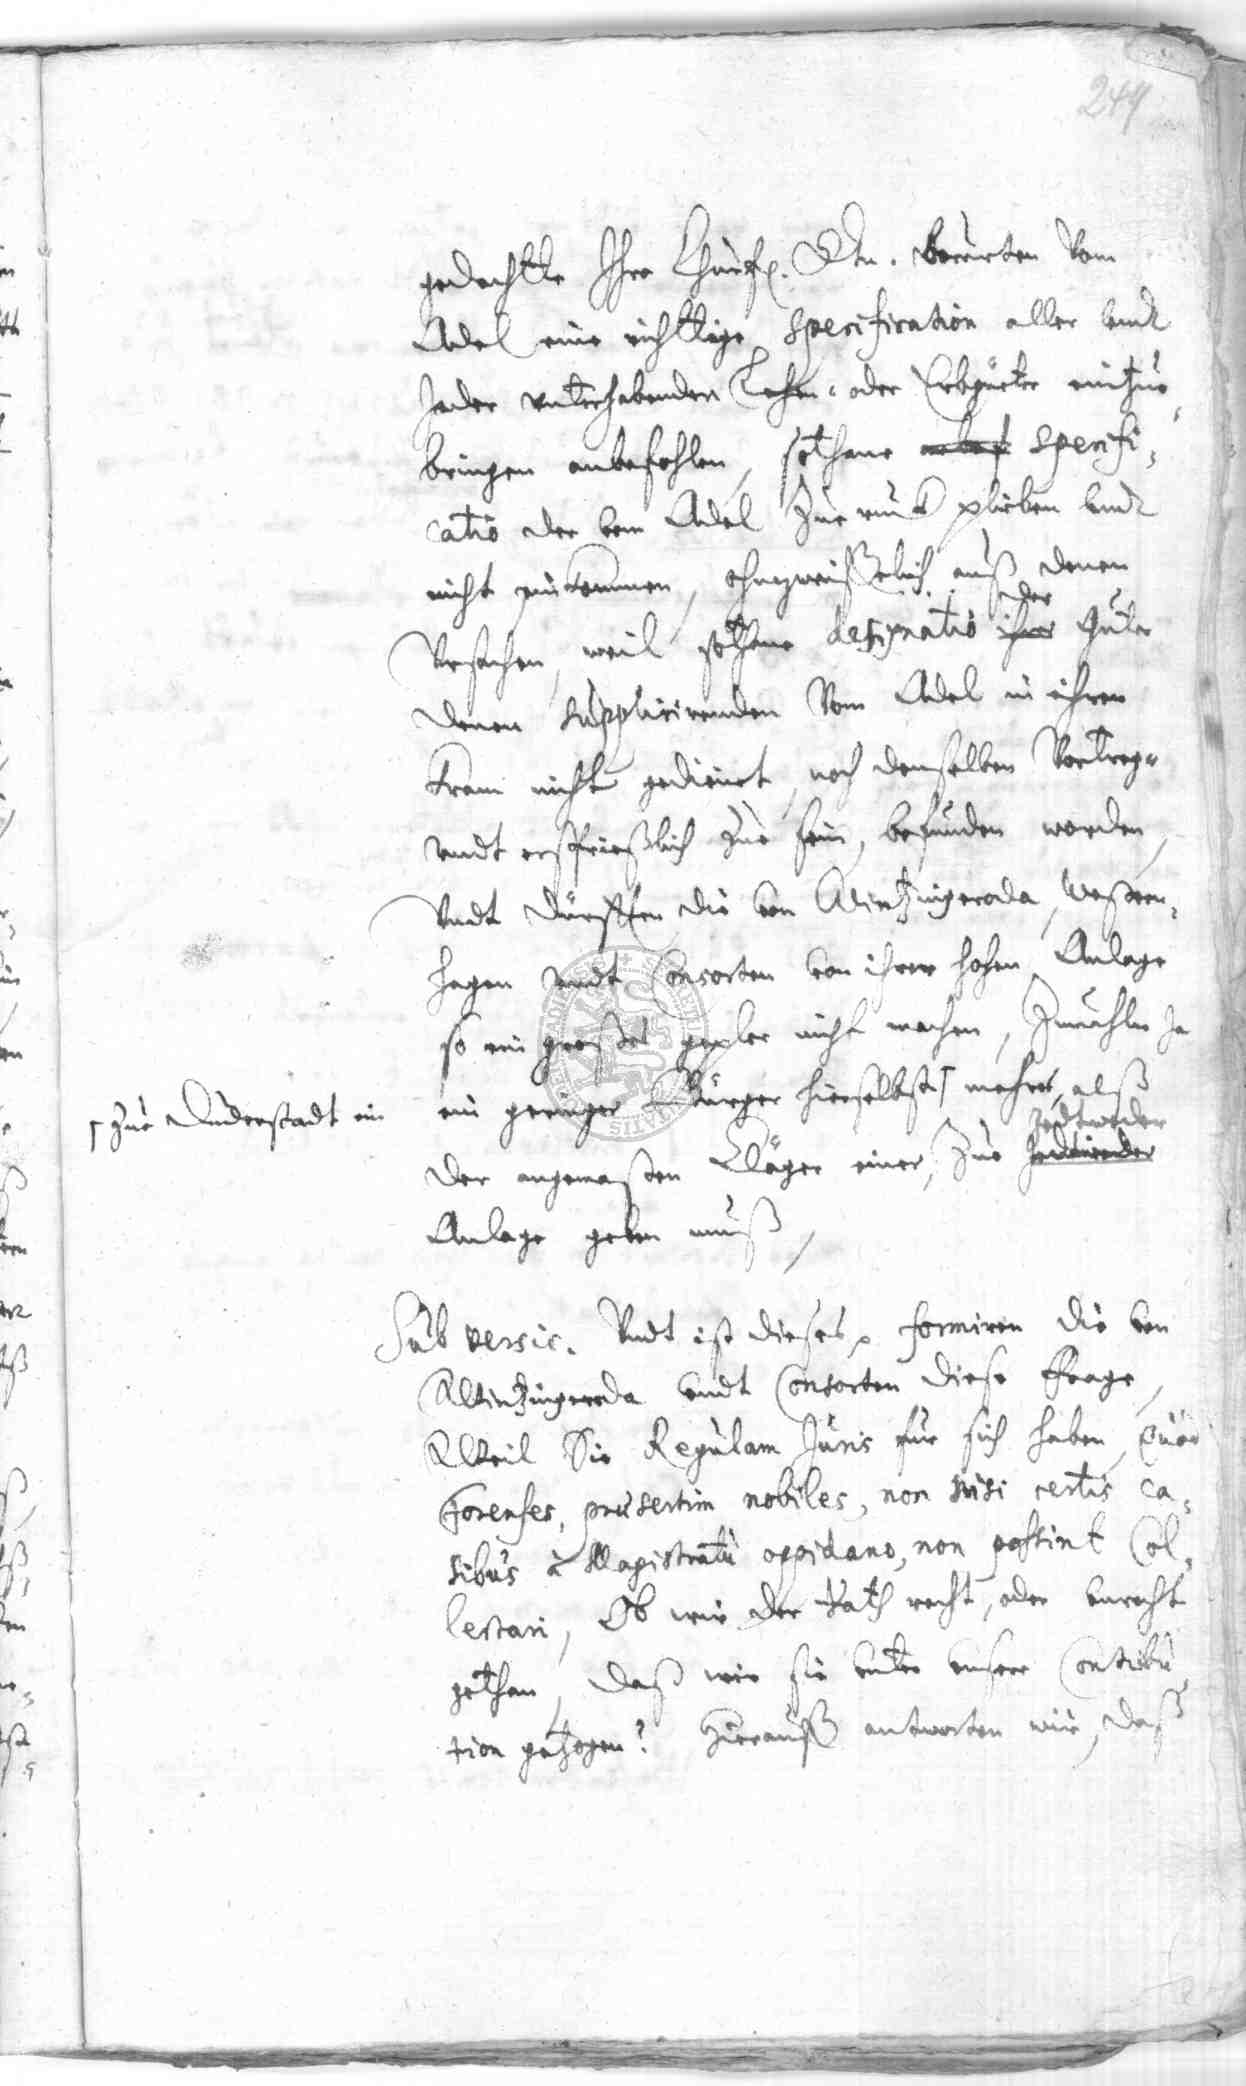 249
gedachtte Ihre Churfl. Dln. berürten Vom
Adel eine richttige Specification aller undt
Jeder unterhabender Lehen- oder Erbgüeter einzue
bringen anbefohlen, sothane Specifi-
catio der vom Adel Zue ruck plieben undt
nicht einkommen, ohnzweiffelich auß denen
Vrsachen, weil sothane designatio der Güter
denen Supplicirenden Vom Adel in ihren
kram nicht gedienet, noch denselben Vorträg-
undt ersprießlich Zue sein, befunden worden,
Vndt dürfften die von Wintzingeroda, Western-
hagen undt Consorten von ihrer hohen Anlage
so ein großes gepler nicht machen, Zumahln Ja
ein geringer Bürger hierselbst mehrer, alß
⌈ Zue Duderstadt ein
der angemaßten Kläger einer, Zue Jedtweder
Anlage geben muß,
Sub versic. Vndt ist dieses p formiren die von
Wintzingeroda undt Consorten diese Frage,
Weil Sie Regulam Juris für sich haben, quod
Forenses, praesertim nobiles, non nisi certis ca-
sibus à Magistratu oppidano, non possint Col-
lectari, Ob wir der Rath recht, oder unrecht
gethan, daß wir sie unter unsere Contribu
tion gezogen? Hierauff antworten wir, daß